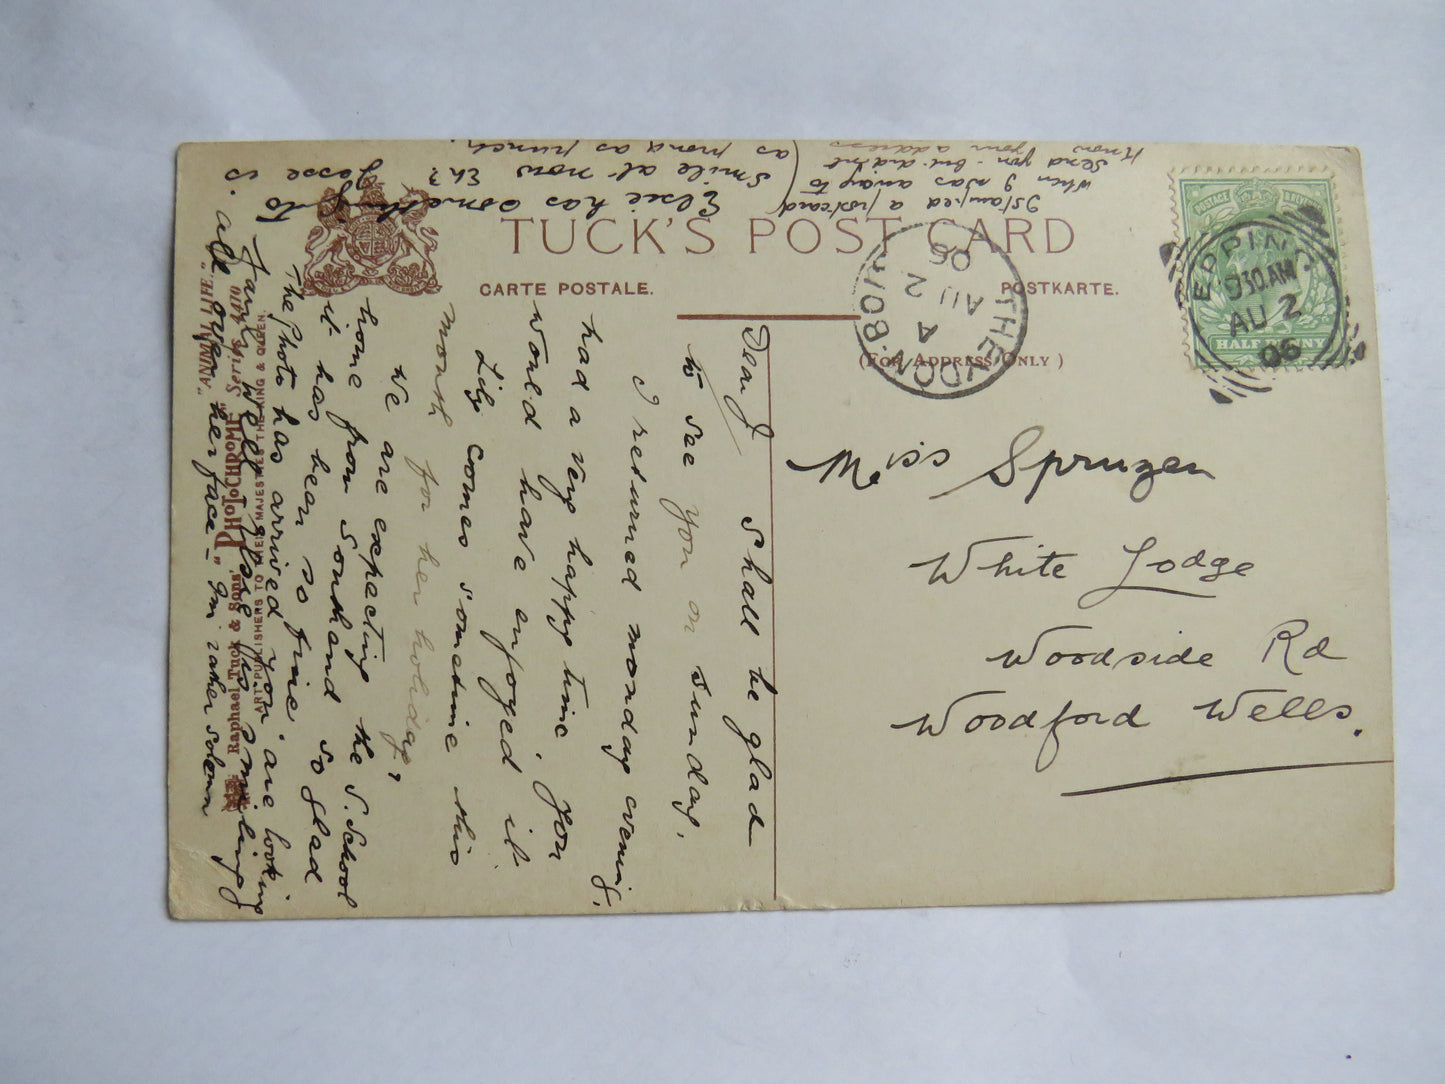 TUCK'S POST CARD
CARTE POSTALE.
POSTKARTE.
(FOR ADDRESS ONLY)
POSTAGE
HALFPENNY
EPPING
930.AM
AU 2
06
THEYDON-BOIS
A
AU 2
06
Miss Spruzen
White Lodge
Woodside Rd
Woodford Wells.
Dear J Shall be glad
to see you on Sunday.
I returned monday evening,
had a very happy time You
would have enjoyed it
Lily comes sometime this
month for her holiday,
We are expecting the S. School
home from Southend so glad
it has been so fine.
The Photo has arrived You are looking
fairly well Jesse is smiling
all over her face – I'm rather solemn
Elsie has something to
smile at now Eh?
Jesse is
as proud as punch.
I stamped a postcard
when I was away to
send you - but didn't
know your address
"ANNAL LIFE."
"PHOTOCHROME" Series
Raphael Tuck & Sons'
ART PUBLISHERS TO THEIR MAJESTIES THE KING & QUEEN.